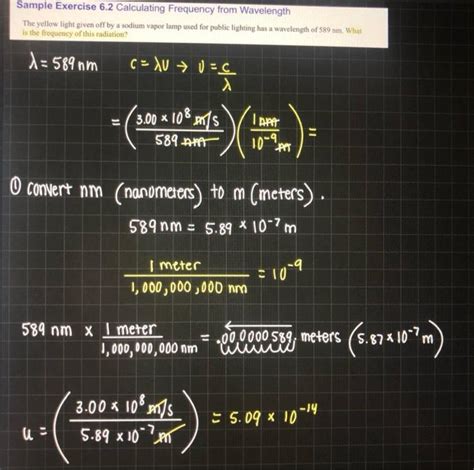 Sample Exercise 6.2 Calculating Frequency from Wavelength
The yellow light given off by a sodium vapor lamp used for public lighting has a wavelength of 589 nm. What
is the frequency of this radiation?
λ = 589 nm   c = λυ → υ = c/λ
= (3.00 × 10⁸ m/s / 589 nm) (1 nm / 10⁻⁹ m) =
① convert nm (nanometers) to m (meters).
589 nm = 5.89 × 10⁻⁷ m
1 meter / 1,000,000,000 nm = 10⁻⁹
589 nm × 1 meter / 1,000,000,000 nm = .000000589, meters (5.87 × 10⁻⁷ m)
u = (3.00 × 10⁸ m/s / 5.89 × 10⁻⁷ m) = 5.09 × 10⁻¹⁴